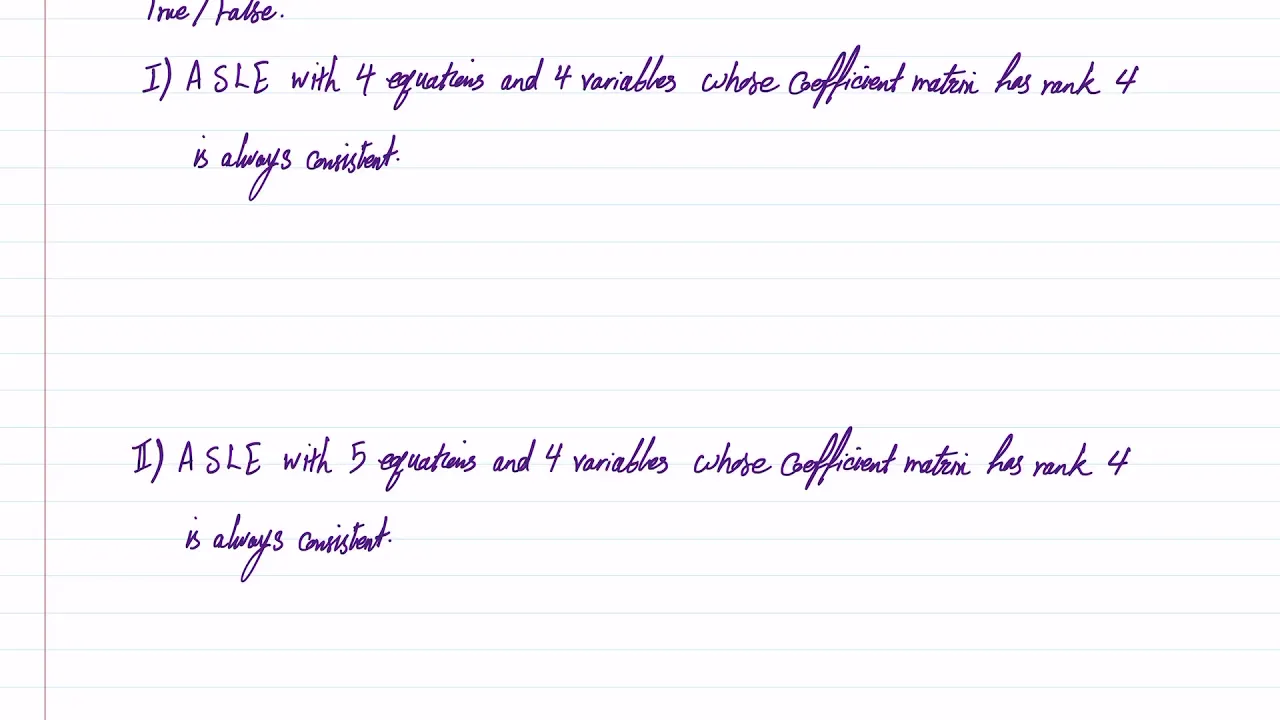 True/False.
I) A SLE with 4 equations and 4 variables whose coefficient matrix has rank 4
is always consistent.
II) A SLE with 5 equations and 4 variables whose coefficient matrix has rank 4
is always consistent.